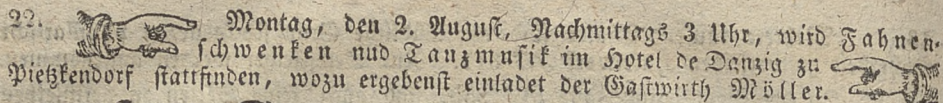 22. Montag, den 2. August, Nachmittags 3 Uhr, wird Fahnen-
schwenken nud Tanzmusik im Hotel de Danzig zu
Pietzkendorf stattfinden, wozu ergebenst einladet der Gastwirth Möller.